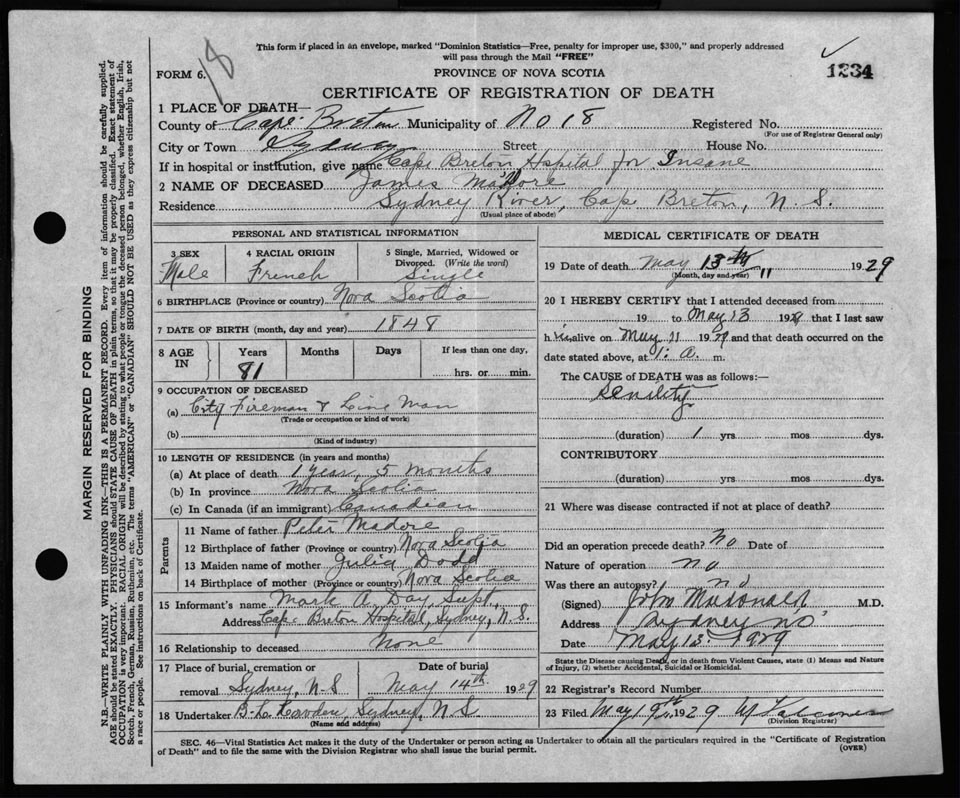 This form if placed in an envelope, marked "Dominion Statistics—Free, penalty for improper use, $300," and properly addressed
will pass through the Mail "FREE"
18
FORM 6.
PROVINCE OF NOVA SCOTIA
1234
CERTIFICATE OF REGISTRATION OF DEATH
1 PLACE OF DEATH—
County of Cape Breton Municipality of No 18 Registered No.
(For use of Registrar General only)
City or Town Sydney Street House No.
If in hospital or institution, give name Cape Breton Hspital for Insane
2 NAME OF DECEASED James Madore
Residence Sydney River, Cape Breton, N. S.
(Usual place of abode)
PERSONAL AND STATISTICAL INFORMATION
3 SEX Male
4 RACIAL ORIGIN French
5 Single, Married, Widowed or Divorced. (Write the word) Single
6 BIRTHPLACE (Province or country) Nova Scotia
7 DATE OF BIRTH (month, day and year) 1848
8 AGE IN Years Months Days If less than one day,
81 hrs. or min.
9 OCCUPATION OF DECEASED
(a) City Fireman & Line Man
(Trade or occupation or kind of work)
(b)
(Kind of industry)
10 LENGTH OF RESIDENCE (in years and months)
(a) At place of death 1 year, 5 months
(b) In province Nova Scotia
(c) In Canada (if an immigrant) Canadian
Parents
11 Name of father Peter Madore
12 Birthplace of father (Province or country) Nova Scotia
13 Maiden name of mother Julia Dodd
14 Birthplace of mother (Province or country) Nova Scotia
15 Informant's name Mark A. Day, Supt.
Address Cape Breton Hospital, Sydney, N. S.
16 Relationship to deceased None
17 Place of burial, cremation or Date of burial
removal Sydney, N-S May 14th 1929
18 Undertaker Sydney, N S
(Name and address)
MEDICAL CERTIFICATE OF DEATH
19 Date of death May 13th 1929
(Month, day and year) "
20 I HEREBY CERTIFY that I attended deceased from
19 to May 13 1929 that I last saw
him alive on May 11 1929 and that death occurred on the
date stated above, at 1. a. m.
The CAUSE of DEATH was as follows:—
Senility
(duration) 1 yrs. mos. dys.
CONTRIBUTORY
(duration) yrs. mos. dys.
21 Where was disease contracted if not at place of death?
Did an operation precede death? No Date of
Nature of operation no
Was there an autopsy? no
(Signed) John Macdonald M.D.
Address Sydney NS
Date May 13. 1929
State the Disease causing Death, or in death from Violent Causes, state (1) Means and Nature
of Injury, (2) whether Accidental, Suicidal or Homicidal.
22 Registrar's Record Number
23 Filed May 19th 1929
(Division Registrar)
SEC. 46—Vital Statistics Act makes it the duty of the Undertaker or person acting as Undertaker to obtain all the particulars required in the "Certificate of Registration
of Death" and to file the same with the Division Registrar who shall issue the burial permit.
(OVER)
MARGIN RESERVED FOR BINDING
N.B.—WRITE PLAINLY WITH UNFADING INK—THIS IS A PERMANENT RECORD. Every item of information should be carefully supplied.
AGE should be stated EXACTLY. PHYSICIANS should STATE CAUSE OF DEATH in plain terms, so that it may be properly classified. Exact statement of
OCCUPATION is very important. RACIAL ORIGIN will be described by stating to what people or tongue the deceased person belonged, whether English, Irish,
Scotch, French, German, Russian, Ruthenian, etc. The terms "AMERICAN" or "CANADIAN" SHOULD NOT BE USED as they express citizenship but not
a race or people. See instructions on back of Certificate.